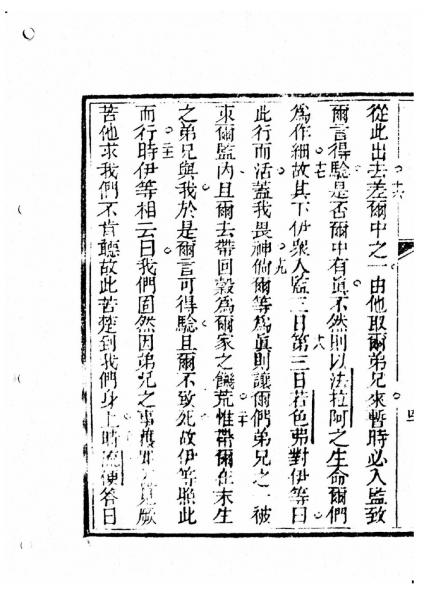 從此出去差爾中之一由他取爾弟兄來暫時必入監致
爾言得驗是否爾中有眞不然則以法拉阿之生命爾們
為作細故其下伊衆入監三日第三日若色弗對伊等曰
此行而活蓋我畏神倘爾等為眞則讓爾們弟兄之一被
束爾監內且爾去帶回穀為爾家之饑荒惟帶爾在末生
之弟兄與我於是爾言可得驗且爾不致死故伊等照此
而行時伊等相云曰我們固然因弟兄之事獲罪 見厥
苦他求我們不肯聽故此苦楚到我們身上 流便答曰
十六
十七
十八
十九
二十
二十一
四